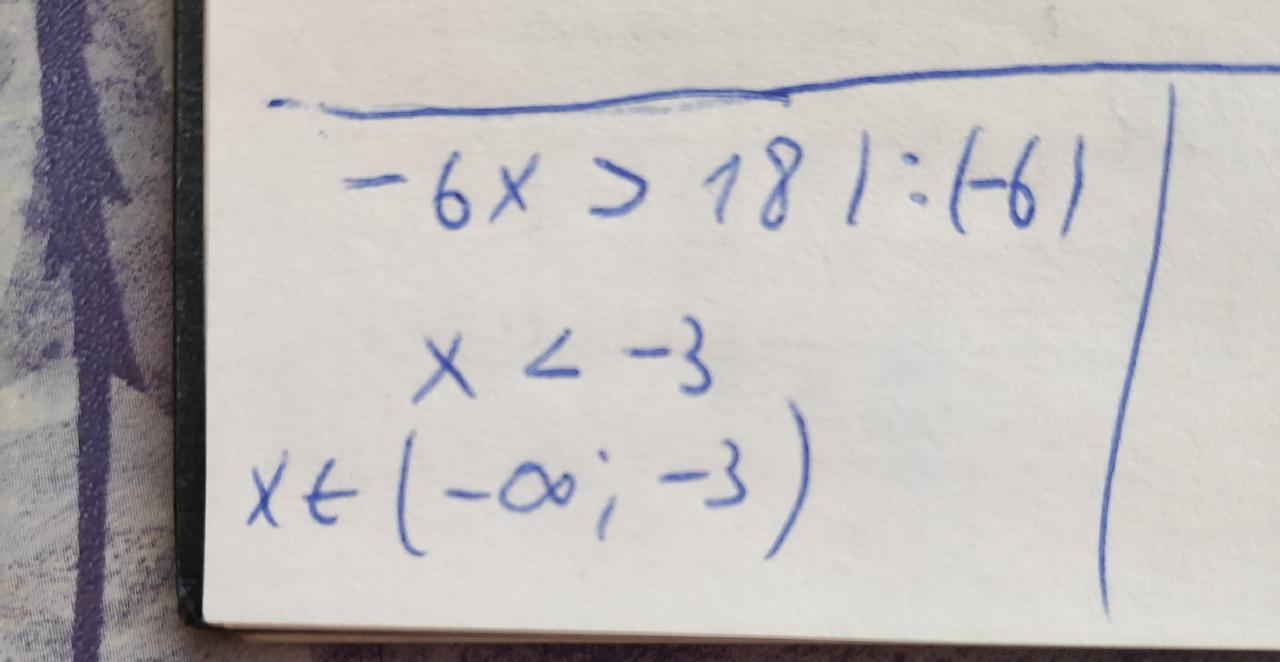 -6x > 18 |:(-6)
x < -3
x ∈ (-∞; -3)